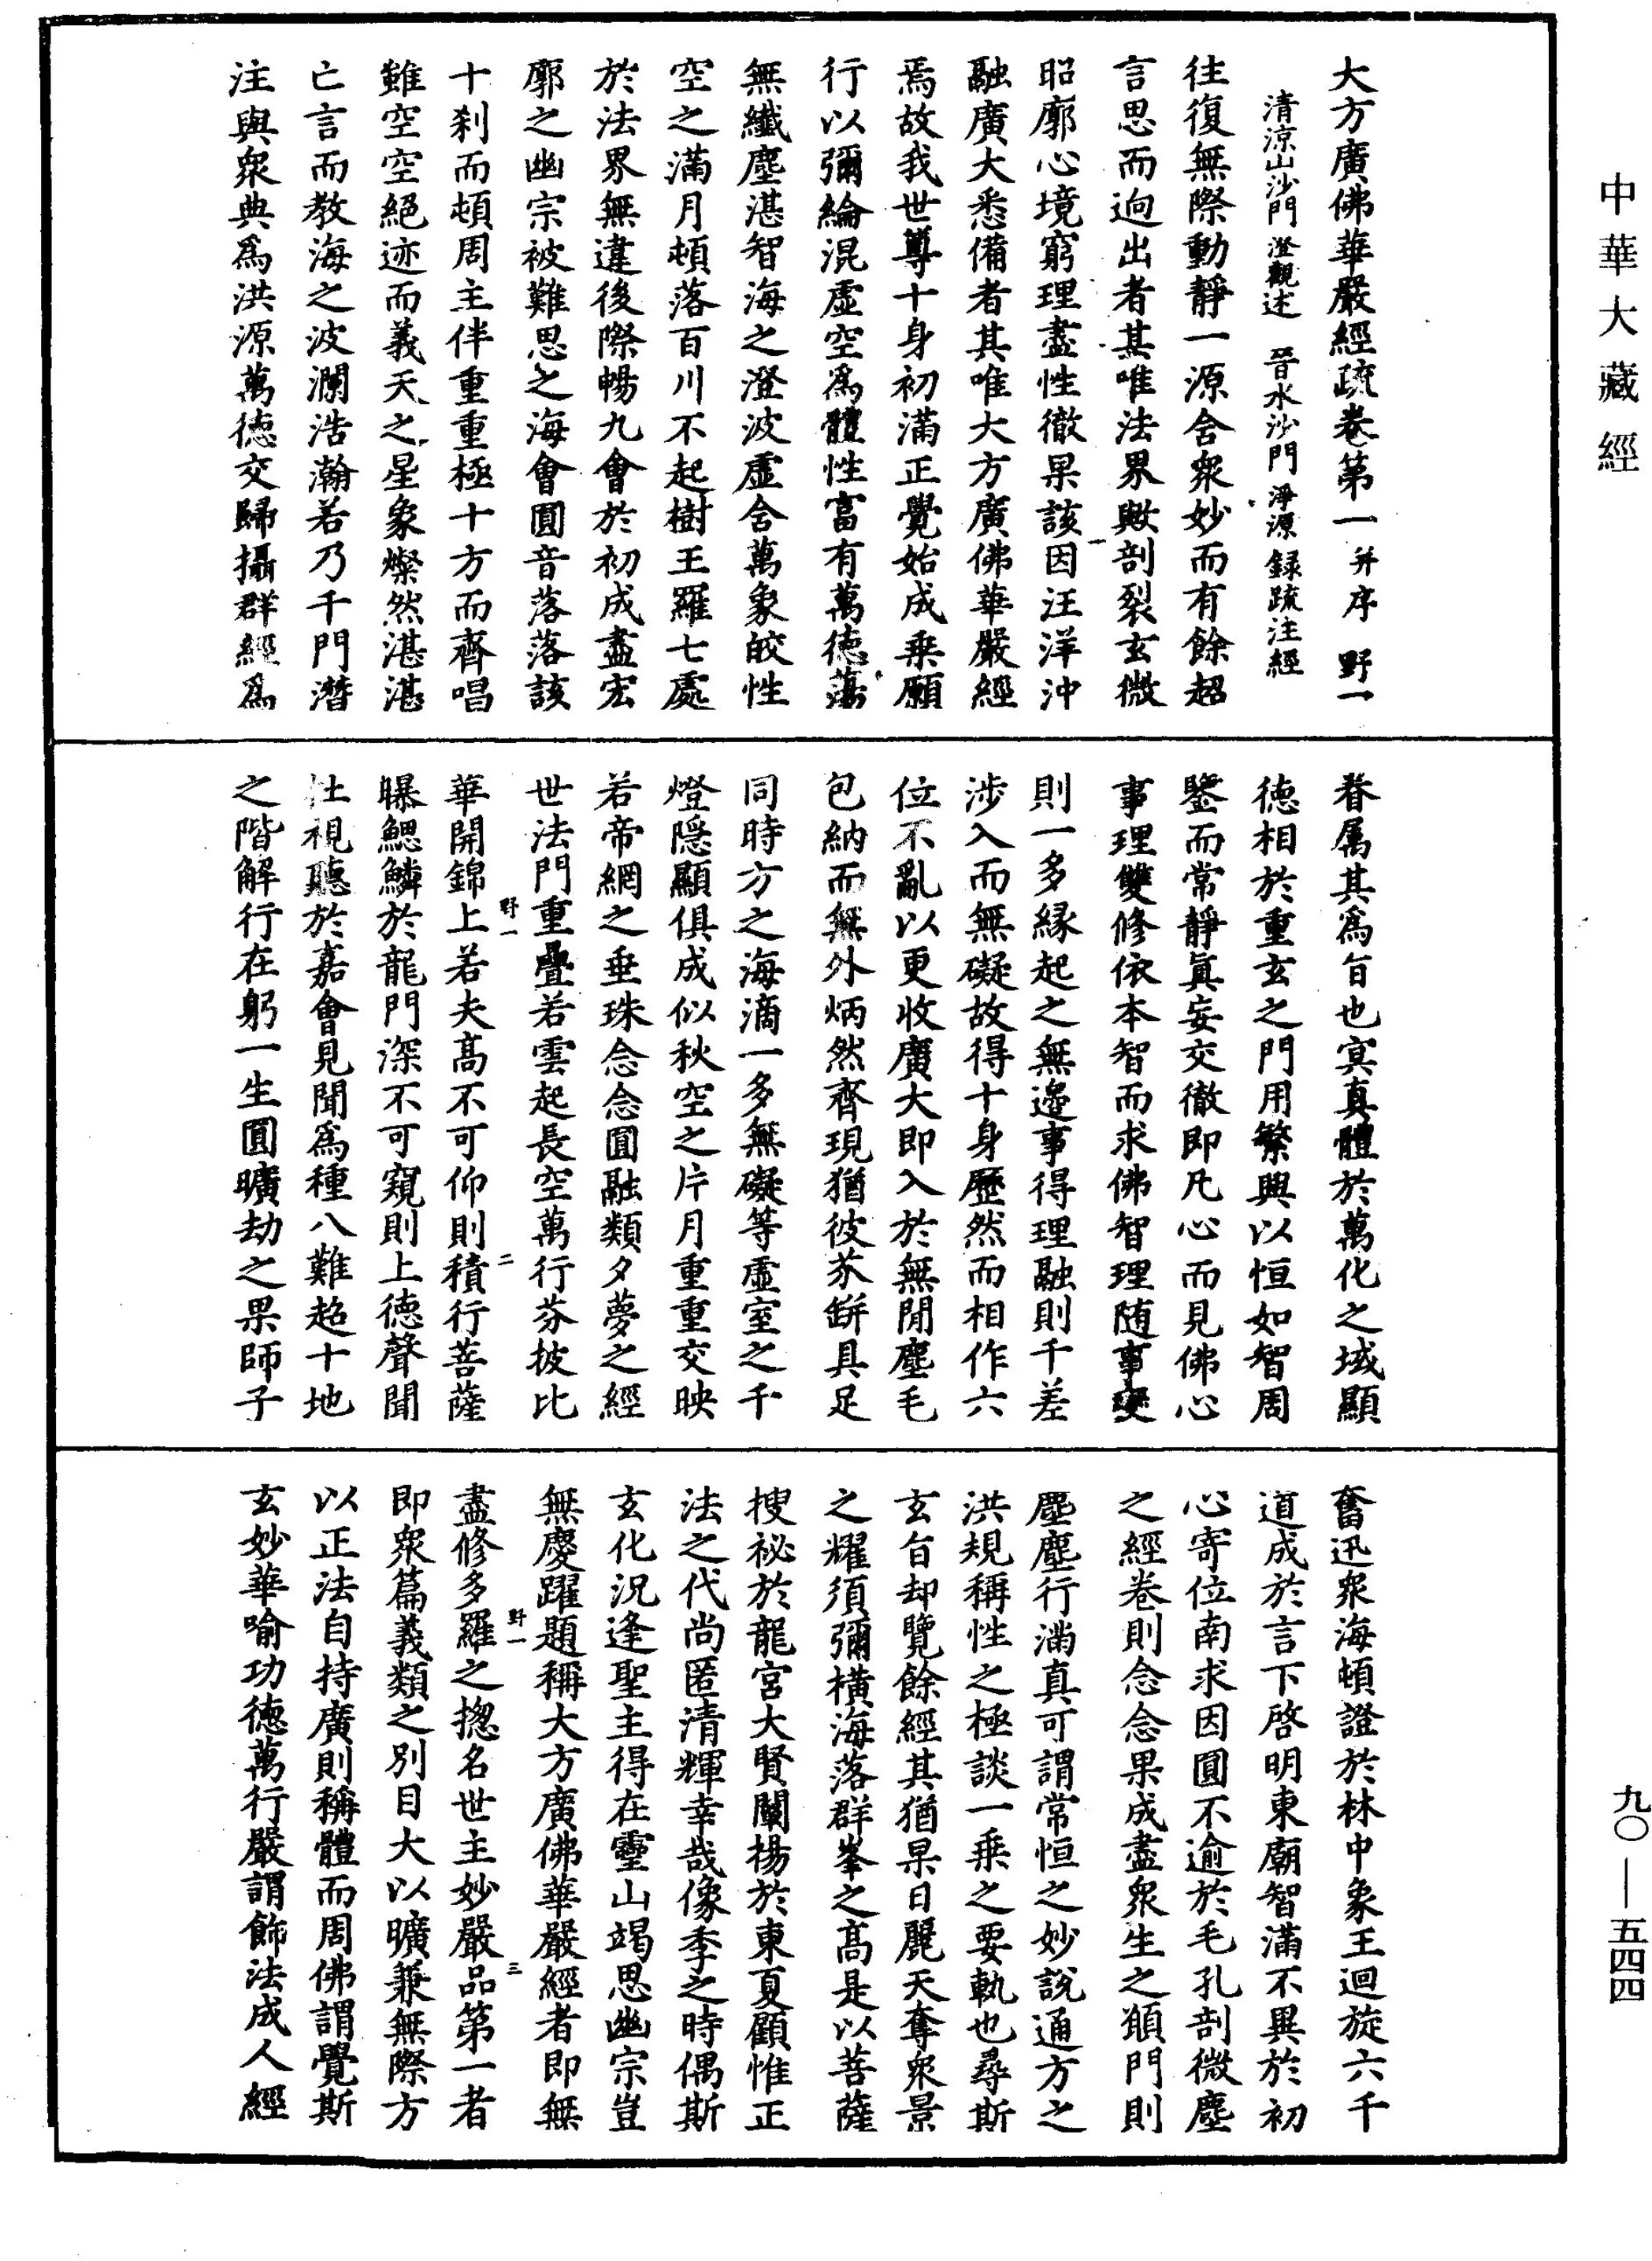 中華大藏經
大方廣佛華嚴經疏卷第一 并序 野一
清涼山沙門 澄觀述 晉水沙門 淨源 録疏注經
往復無際動靜一源含衆妙而有餘超
言思而逈出者其唯法界歟剖裂玄微
昭廓心境窮理盡性徹果該因汪洋沖
融廣大悉備者其唯大方廣佛華嚴經
焉故我世尊十身初滿正覺始成乗願
行以彌綸混虛空爲體性富有萬德蕩
無纖塵湛智海之澄波虛含萬象皎性
空之滿月頓落百川不起樹王羅七處
於法界無違後際暢九會於初成盡宏
廓之幽宗被難思之海會圓音落落該
十刹而頓周主伴重重極十方而齊唱
雖空空絕迹而義天之星象燦然湛湛
亡言而教海之波瀾浩瀚若乃千門潛
注與衆典爲洪源萬德交歸攝群經爲
眷属其爲旨也冥真體於萬化之域顯
德相於重玄之門用繁興以恒如智周
鑒而常靜眞妄交徹即凡心而見佛心
事理雙修依本智而求佛智理随事變
則一多緣起之無邊事得理融則千差
涉入而無礙故得十身歷然而相作六
位不亂以更收廣大即入於無閒塵毛
包納而無外炳然齊現猶彼芥缾具足
同時方之海滴一多無礙等虛室之千
燈隱顯俱成似秋空之片月重重交映
若帝網之垂珠念念圓融類夕夢之經
世法門重疊若雲起長空萬行芬披比
野一
華開錦上若夫高不可仰則積行菩薩
二
曝鰓鱗於龍門深不可窺則上德聲聞
杜視聽於嘉會見聞爲種八難超十地
之階解行在躬一生圓曠劫之果師子
奮迅衆海頓證於林中象王迴旋六千
道成於言下啓明東廟智滿不異於初
心寄位南求因圓不逾於毛孔剖微塵
之經卷則念念果成盡衆生之願門則
塵塵行滿真可謂常恒之妙說通方之
洪規稱性之極談一乗之要軌也尋斯
玄旨却覽餘經其猶杲日麗天奪衆景
之耀須彌橫海落群峯之高是以菩薩
搜祕於龍宮大賢闡揚於東夏顧惟正
法之代尚匿清輝幸哉像季之時偶斯
玄化況逢聖主得在靈山竭思幽宗豈
無慶躍題稱大方廣佛華嚴經者即無
野一
盡修多羅之揔名世主妙嚴品第一者
三
即衆篇義類之別目大以曠兼無際方
以正法自持廣則稱體而周佛謂覺斯
玄妙華喻功德萬行嚴謂飾法成人經
九〇—五四四